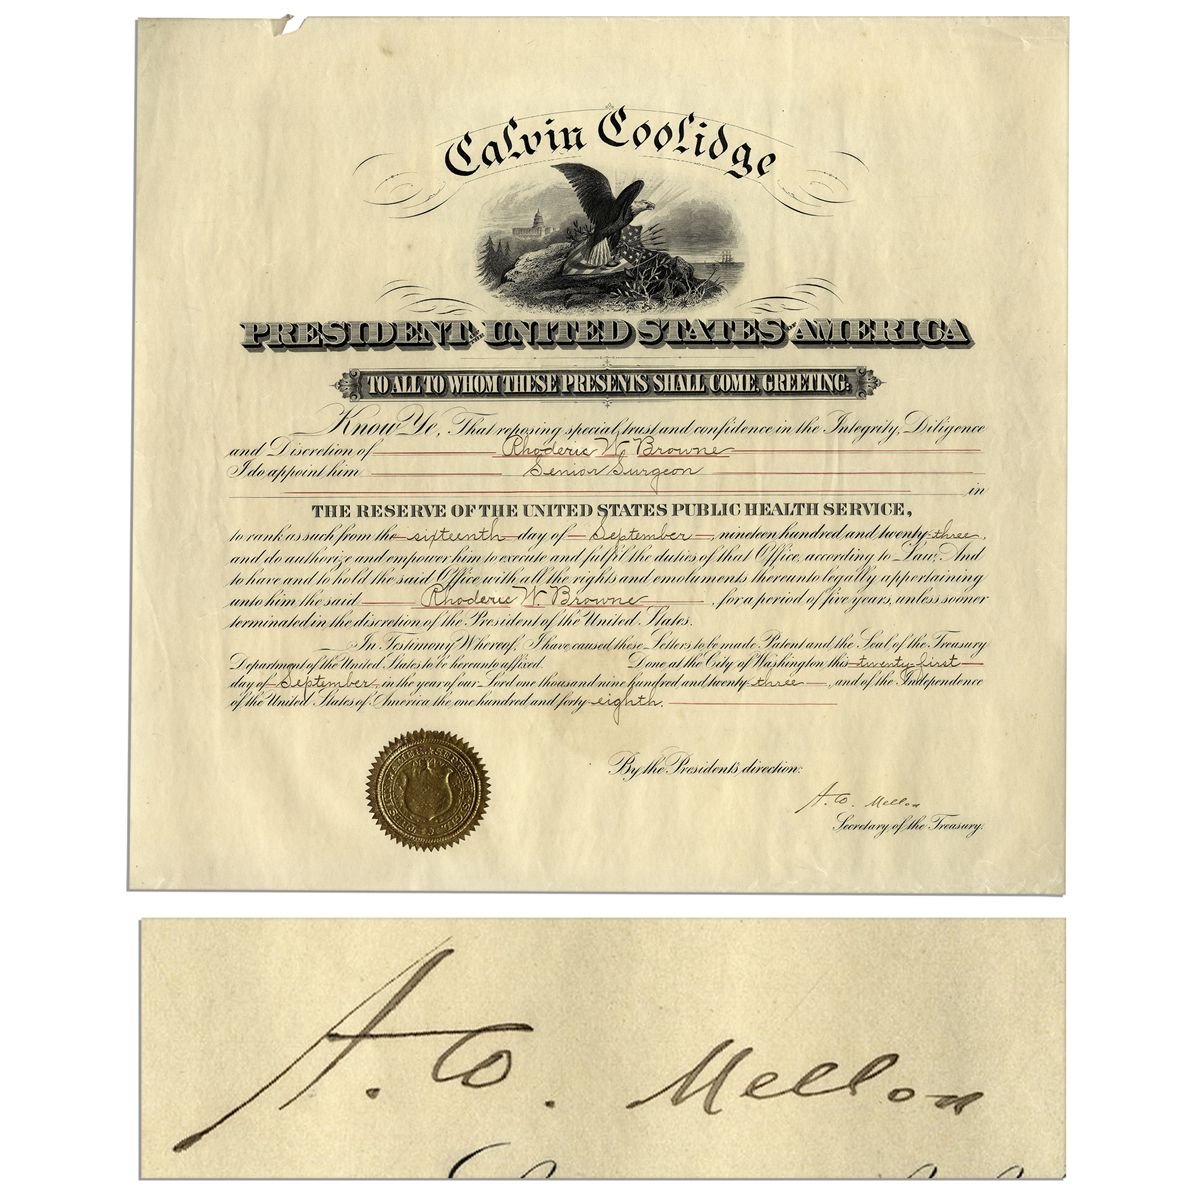 Calvin Coolidge
PRESIDENT OF THE UNITED STATES OF AMERICA
TO ALL TO WHOM THESE PRESENTS SHALL COME, GREETING:
Know Ye, That reposing special trust and confidence in the Integrity, Diligence
and Discretion of Rhoderic W. Browne
I do appoint him Senior Surgeon
in
THE RESERVE OF THE UNITED STATES PUBLIC HEALTH SERVICE,
to rank as such from the sixteenth day of September, nineteen hundred, and twenty-three,
and do authorize and empower him to execute and fulfil the duties of that Office, according to Law; And
to have and to hold the said Office, with all the rights and emoluments thereunto legally appertaining
unto him the said Rhoderic W. Browne, for a period of five years, unless sooner
terminated in the discretion of the President of the United States.
In Testimony Whereof, I have caused these Letters to be made Patent and the Seal of the Treasury
Department of the United States to be hereunto affixed. Done at the City of Washington this twenty-first
day of September, in the year of our Lord one thousand nine hundred and twenty-three, and of the Independence
of the United States of America the one hundred and forty-eighth.
By the President's direction:
A. W. Mellon
Secretary of the Treasury.
A. W. Mellon